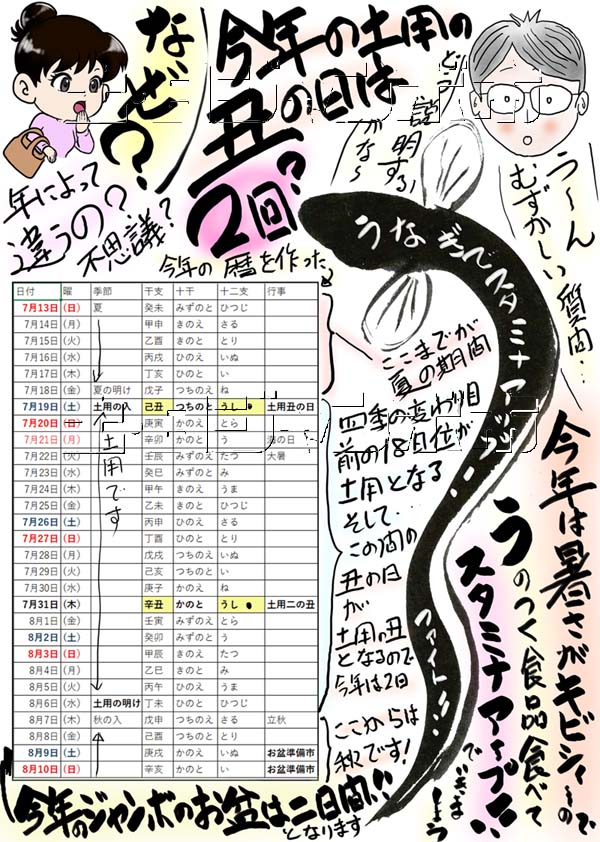 なぜ?
今年の土用の
丑の日は
2回?
どう
説明する
かな〜
う〜ん
むずかしい質問…
年によって
違うの?
不思議?
今年の暦を作った
日付 曜 季節 干支 十干 十二支 行事
7月13日 (日) 夏 癸未 みずのと ひつじ
7月14日 (月) 甲申 きのえ さる
7月15日 (火) 乙酉 きのと とり
7月16日 (水) 丙戌 ひのえ いぬ
7月17日 (木) 丁亥 ひのと い
7月18日 (金) 夏の明け 戊子 つちのえ ね
7月19日 (土) 土用の入 己丑 つちのと うし 土用丑の日
7月20日 (日) 庚寅 かのえ とら
7月21日 (月) 辛卯 かのと う 海の日
7月22日 (火) 壬辰 みずのえ たつ 大暑
7月23日 (水) 癸巳 みずのと み
7月24日 (木) 甲午 きのえ うま
7月25日 (金) 乙未 きのと ひつじ
7月26日 (土) 丙申 ひのえ さる
7月27日 (日) 丁酉 ひのと とり
7月28日 (月) 戊戌 つちのえ いぬ
7月29日 (火) 己亥 つちのと い
7月30日 (水) 庚子 かのえ ね
7月31日 (木) 辛丑 かのと うし 土用二の丑
8月1日 (金) 壬寅 みずのえ とら
8月2日 (土) 癸卯 みずのと う
8月3日 (日) 甲辰 きのえ たつ
8月4日 (月) 乙巳 きのと み
8月5日 (火) 丙午 ひのえ うま
8月6日 (水) 土用の明け 丁未 ひのと ひつじ
8月7日 (木) 秋の入 戊申 つちのえ さる 立秋
8月8日 (金) 己酉 つちのと とり
8月9日 (土) 庚戌 かのえ いぬ お盆準備市
8月10日 (日) 辛亥 かのと い お盆準備市
土用です
うなぎでスタミナアップ…
ファイト!!!
ここまでが
夏の期間
四季の変わり目
前の18日位が
土用となる
そして…
この間の
丑の日
が
土用の丑
となるので
今年は2回
ここからは
秋です!
今年は暑さがキビシィ〜ので
うのつく食品食べて
スタミナアップ!!
できましょう
今年のジャンボのお盆は二日間!!
となります